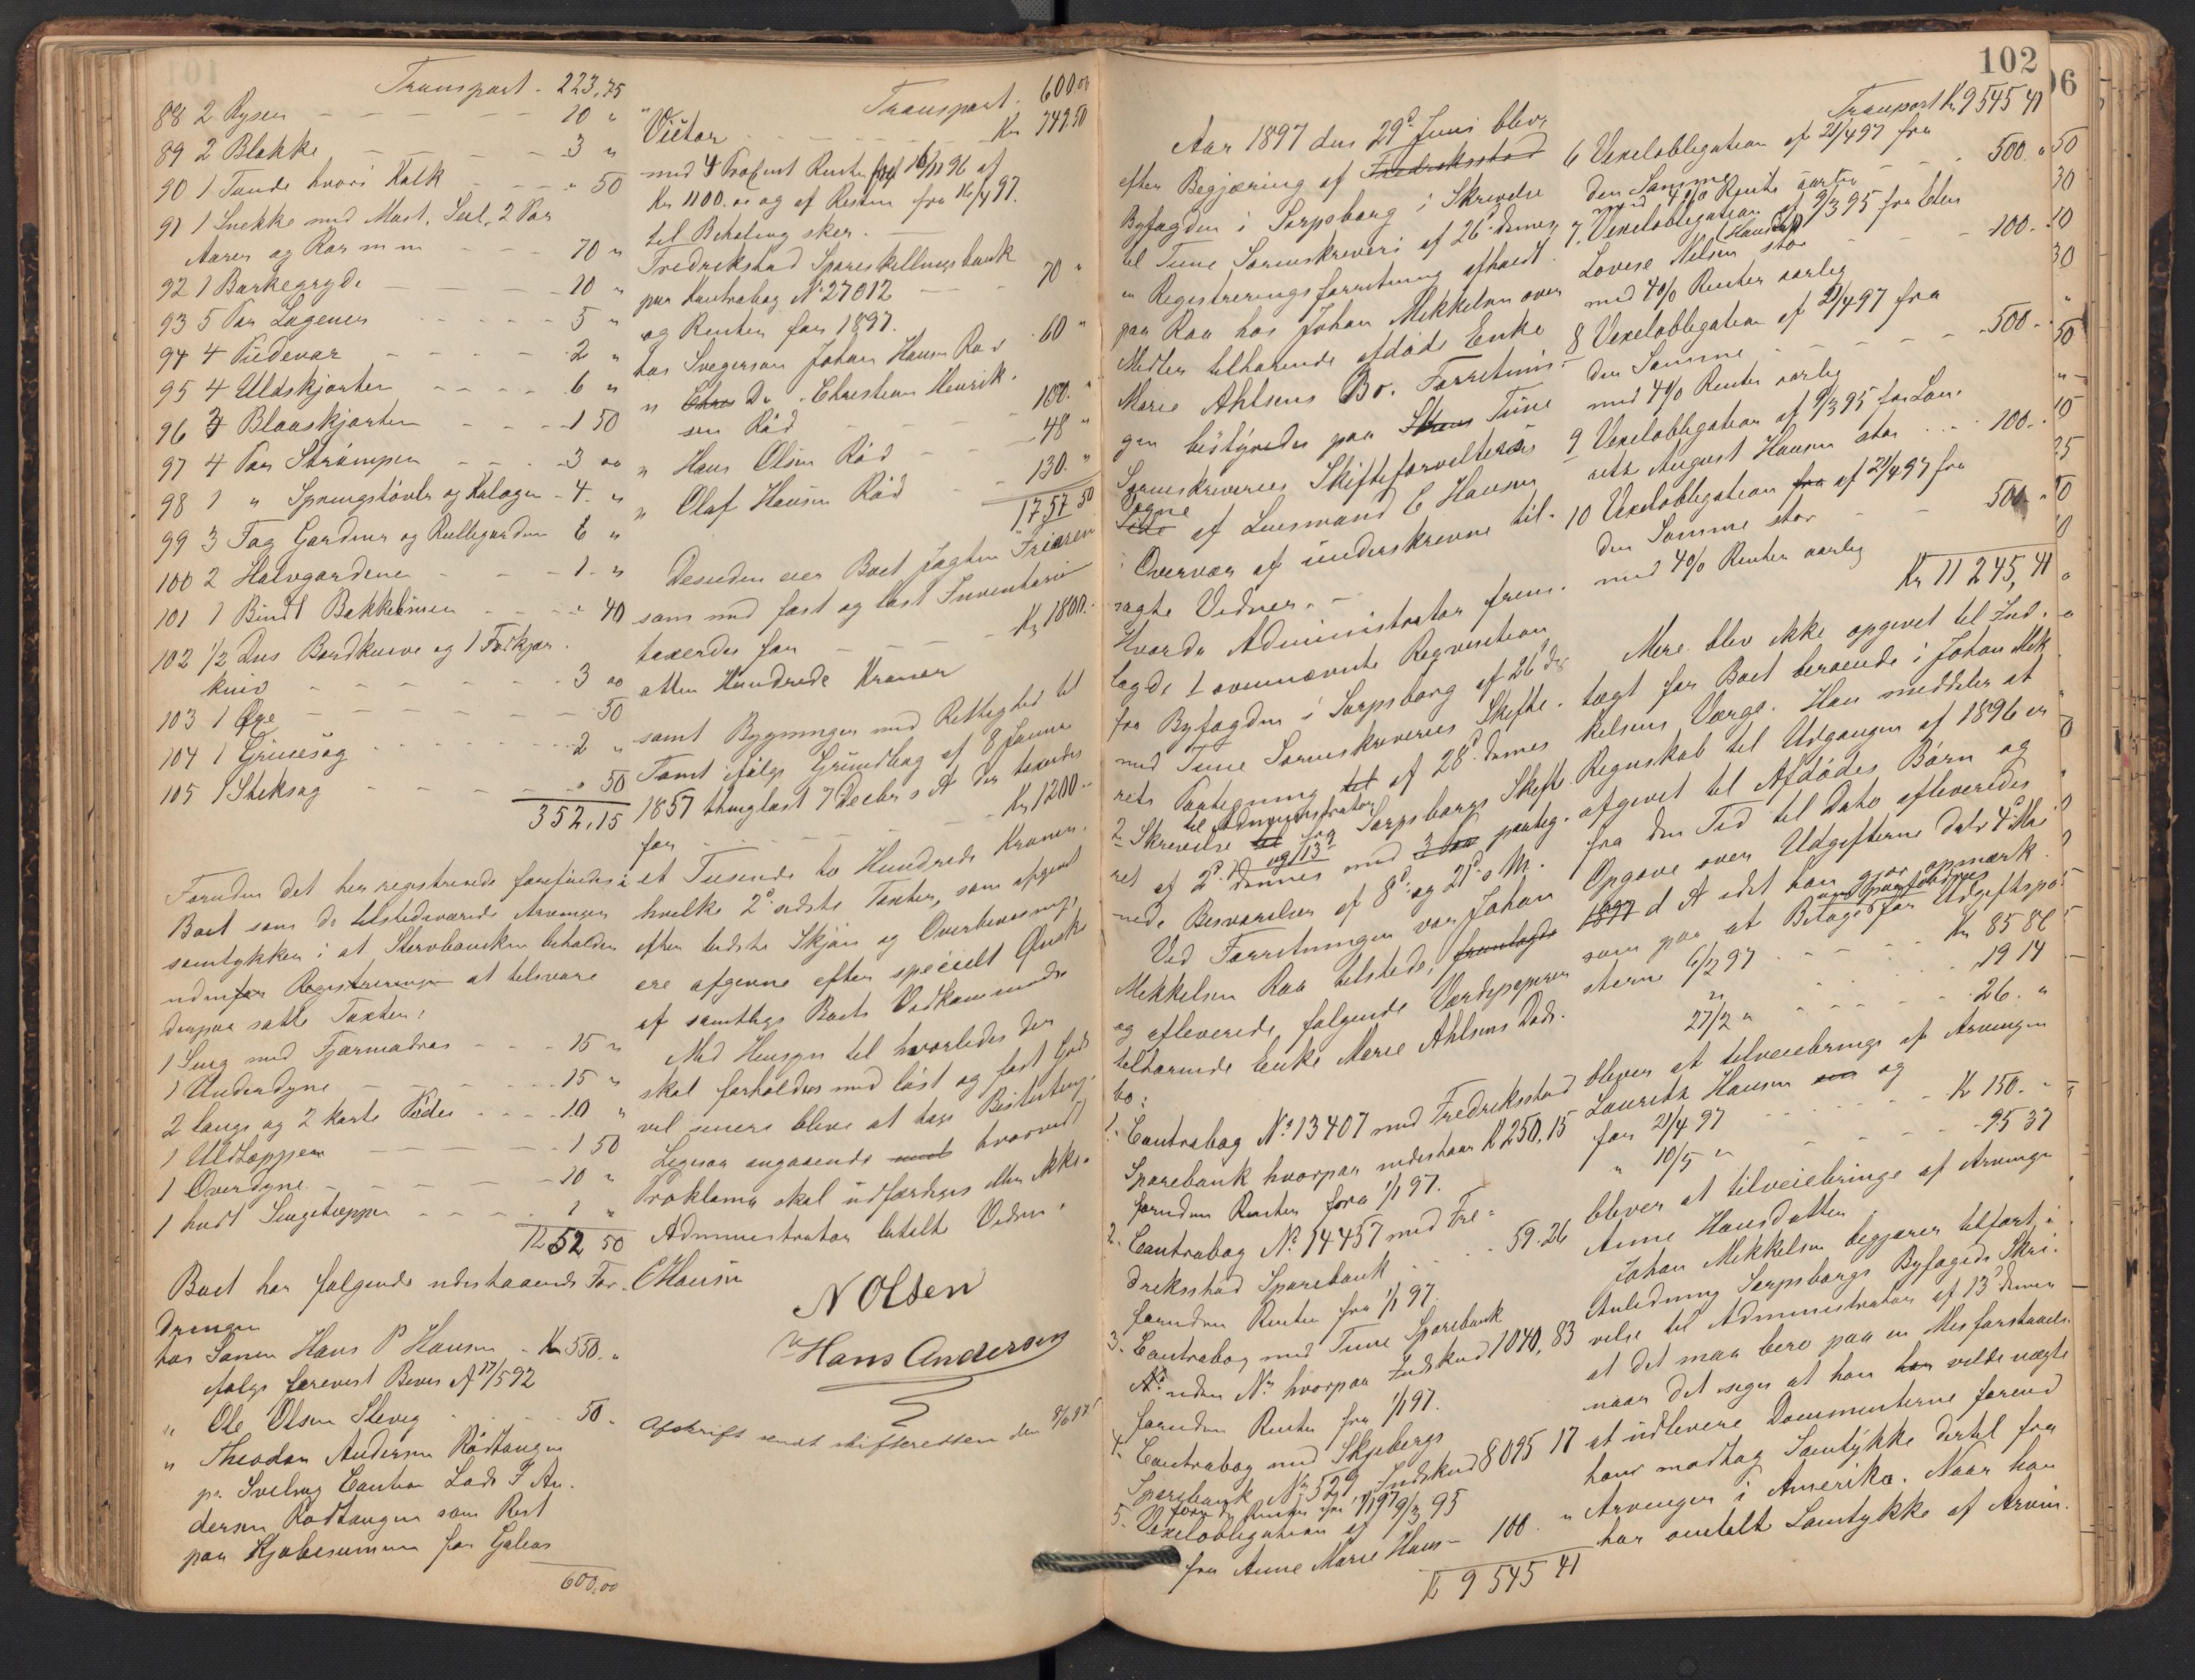 Transport - 223,75
88 2 Ryser - - - - 10 "
89 2 Blakke - - - - 3 "
90 1 Tønde hvori Kalk - - - " 50
91 1 Snekke med Mast, Seil, 2 Par
Aarer og Ror m m - - 70 "
92 1 Barkegryde - - - 10 "
93 5 Par Lagener - - - 5 "
94 4 Pudevar - - - 2 "
95 4 Uldskjorter - - - 6 "
96 3 Blaaskjorter - - - 1 50
97 4 Par Strømper - - - 3 00
98 1 " Springstøvler og Kalager - 4 - "
99 3 Fag Gardiner og Rullegardiner 6 "
100 2 Halvgardiner - - - 1 - "
101 1 Bindt Bakkeliner - - - " 40
102 1/2 Dus Bordknive og 1 Forskjær
kniv - - - - 3 00
103 1 Øxe - - - - 50
104 1 Grinesag - - - 2 "
105 1 Stiksag - - - " 50
352,15
Foruden det her registrerede forefindes i
Boet som de tilstedeværende Arvinger
samtykker i at Stervboenken beholder
udenfor Registreringen at tilsvare
derpaa satte Taxter:
1 Seng med Fjærmadras - - - 15 "
1 Underdyne - - - 15 "
2 lange og 2 korte Puder - - - 10 "
1 Uldtæppe - - - 1 50
1 Overdyne - - - 10 "
1 hvidt Sengetæppe - - - 1 "
Kr 52 50
Boet har følgende udestaaende For-
dringer
hos Sønnen Hans P Hansen - Kr 550. "
ifølge forevist Bevis af 17/5 92
" Ole Olsen Sleveg - - - 50 "
" Theodor Andersen Rødtangen
pr. Svelvig Caution Lods F An-
dersen Rødtangen som Rest
paa Kjøbesummen for Galeas
600,00
Transport - 600.00
"Victor - - - Kr 747.50
med 4 Procent Renter fra 16/11 96 af
Kr 1100.00 og af Resten fra 16/4 97.
til Betaling sker.
Fredrikstad Spareskillingsbank
paa Kontrabog No 27012 - - - 70 "
og Renter for 1897.
hos Svigersøn Johan Hansen Rød 60 "
" Do . Christian Henrik-
sen Rød - - - 100. "
" Hans Olsen Rød - - - 48 "
" Olaf Hansen Rød - - - 130. "
1757 50
Desuden eier Boet Jagten "Friaren"
som med fast og løst Inventarie
taxerdes for - - - Kr 1800.-
atten Hundrede Kroner
samt Bygninger med Rettighed til
Tomt ifølge Grundbog af 8 Januar
1857 thinglæst 7 Decbr s A der taxerdes
for - - - Kr 1200.-
et Tusende to Hundrede Kroner.
hvilke 2de sidste Taxter, som afgivet
efter bedste Skjøn og Overbevisning,
ere afgivne efter specielt Ønske
af samtlige Boets Vedkommende
Med Hensyn til hvorledes der
skal forholdes med løst og fast Gods
vil senere blive at tage Bestemmelse.
Ligesaa angaaende hvorvidt
Proklama skal udfærdiges eller ikke.
Administrator betalte Vidner.
CHansen
N Olsen
Hans Andersen
Afskrift sendt skifteretten den 8/6 97
102
Aar 1897 den 29de Juni blev
efter Begjæring af Fredriksstad
Byfogden i Sarpsborg i Skrivelse
til Tune Sorenskriveri af 26de dennes
en Registreringsforretning afholdt
paa Raa hos Johan Mekkelsen over
Midler tilhørende afdøde Enke
Marie Ahlsens Bo. Forretnin-
gen bestyredes paa Tune
Sorenskriveries Skifteforvalteres
Vegne af Lensmand C Hansen
i Overvær af underskrevne til-
sagte Vidner. -
Hvorda Administrator frem-
lagde 1 ovennævnte Reqvisition
fra Byfogden i Sarpsborg af 26de ds
med Tune Sorenskriveries Skifte-
rets Paategning af 28de dennes
2 Skrivelse til Administrator fra Sarpsborgs Skifte-
ret af 2de og 13de dennes med paateg-
nede Besvarelser af 8de og 21de s M.
Ved Forretningen var Johan
Mekkelsen Raa tilstede, fremlagde
og afleverede, følgende Værdipapirer
tilhørende Enke Marie Ahlsens Døds-
bo:
1. Contrabog No 13407 med Fredriksstad
Sparebank hvorpaa indestaar K 250,15
foruden Renter fra 1/1 97.
2. Contrabog No 14457 med Fre-
driksstad Sparebank - - 59.26
foruden Renter fra 1/1 97.
3. Contrabog med Tune Sparebank
uden No hvorpaa Indskud 1040,83
foruden Renter fra 1/1 97.
4. Contrabog med Skjebergs
Sparebank No 529 Indskud 8095 17
foruden Renter fra 1/1 97
5. Vexelobligation af 9/3 95
fra Anne Marie Hans- 100. "
K 9545 41
Transport Kr 9545 41
6 Vexelobligation af 21/4 97 fra
den Samme - - 500. "
med 4% Rente aarlig
7. Vexelobligation af 9/3 95 fra Edin
Lovise Nilsen stor - - 100. -
med 4% Renter aarlig
8 Vexelobligation af 21/4 97 fra
den Samme - - - 500. -
med 4% Renter aarlig
9 Vexelobligation af 9/3 95 fra Lau-
ritz August Hansen stor - - 100. -
10 Vexelobligation fra af 21/4 97 fra
den Samme stor - - 500 "
med 4% Renter aarlig
Kr 11245,41
Mere blev ikke opgivet til Ind-
tægt for Boet beroende i Johan Mek-
kelsens Værge. Han meddeler at
Regnskab til Udgangen af 1896 er
afgivet til Afdødes Børn og
fra den Tid til Dato afleveredes
Opgave over Udgifterne datr 4de Mai
d A idet han gjør opmærk-
som paa at Bilages for Udgiftspo-
sterne 6/2 97 - - - Kr 85 86
" - - - 19 14
27/2 " - - - 26. "
bliver at tilveiebringe af Arvingen
Lauritz Hansen og
for 21/4 97 - - - K 150. -
" 10/5 " - - - 95 37
bliver at tilveiebringe af Arvinge
Anne Hansdatter.
Johan Mekkelsen begjærer tilført i
Anledning Sarpsborgs Byfogeds Skri-
velse til Administrator af 13de dennes
at det maa bero paa en Misforstaaelse
naar det siges at han vilde nægte
at udlevere Documenterne forend
han modtog Samtykke dertil fra
Arvinger i Amerika. Naar han
har omtalt Samtykke af Arvin-